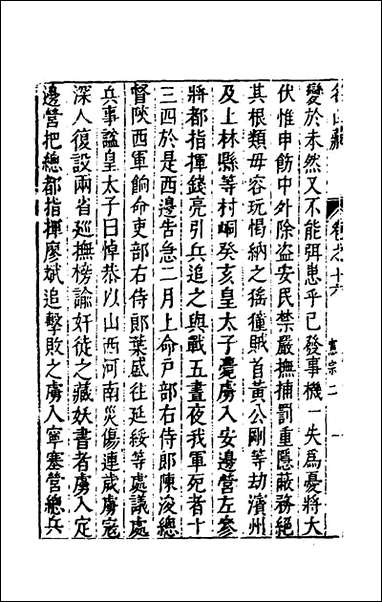 名山藏
卷之十六
憲宗二
一
變於未然又不能弭患乎已發事機一失為憂將大
伏惟申飭中外除盗安民禁嚴撫捕罰重隱蔽務絕
其根類毋容玩愒納之猺獞賊首黃公剛等劫濱州
及上林縣等村峒癸亥皇太子薨虜入安邊營左參
將都指揮錢亮引兵追之與戰五晝夜我軍死者十
三四於是西邊告急二月上命戶部右侍郎陳浚總
督陝西軍餉命吏部右侍郎葉盛往延綏等處議處
兵事諡皇太子曰悼恭以山西河南災傷連歲虜寇
深入復設兩省廵撫榜諭奸徒之藏妖書者虜入定
邊營把總都指揮廖斌追擊敗之虜入寧塞營總兵